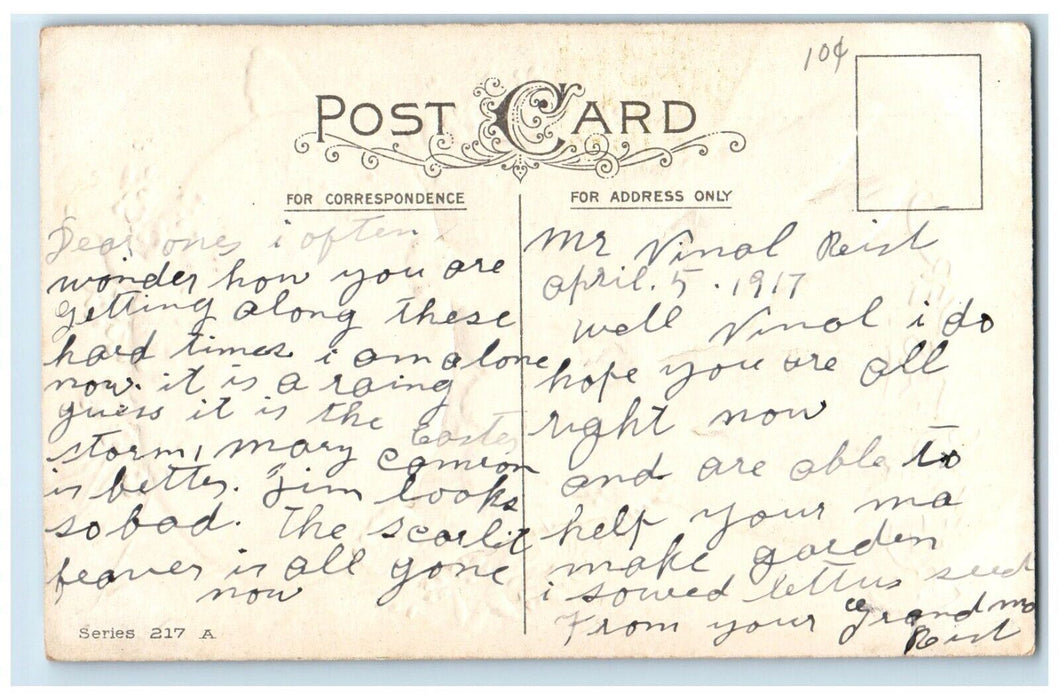 10¢
POST CARD
FOR CORRESPONDENCE
FOR ADDRESS ONLY
Dear ones i often
wonder how you are
getting along these
hard times i am alone
now. it is a raing
guess it is the Easter
storm, mary Camron
is better. Jim looks
so bad. The scarlit
feaver is all gone
now
Series 217 A
Mr Vinal Reist
april. 5. 1917
well Vinal i do
hope you are all
right now
and are able to
help your ma
make garden
i sowed lettus seed
From your Grandma
Reist